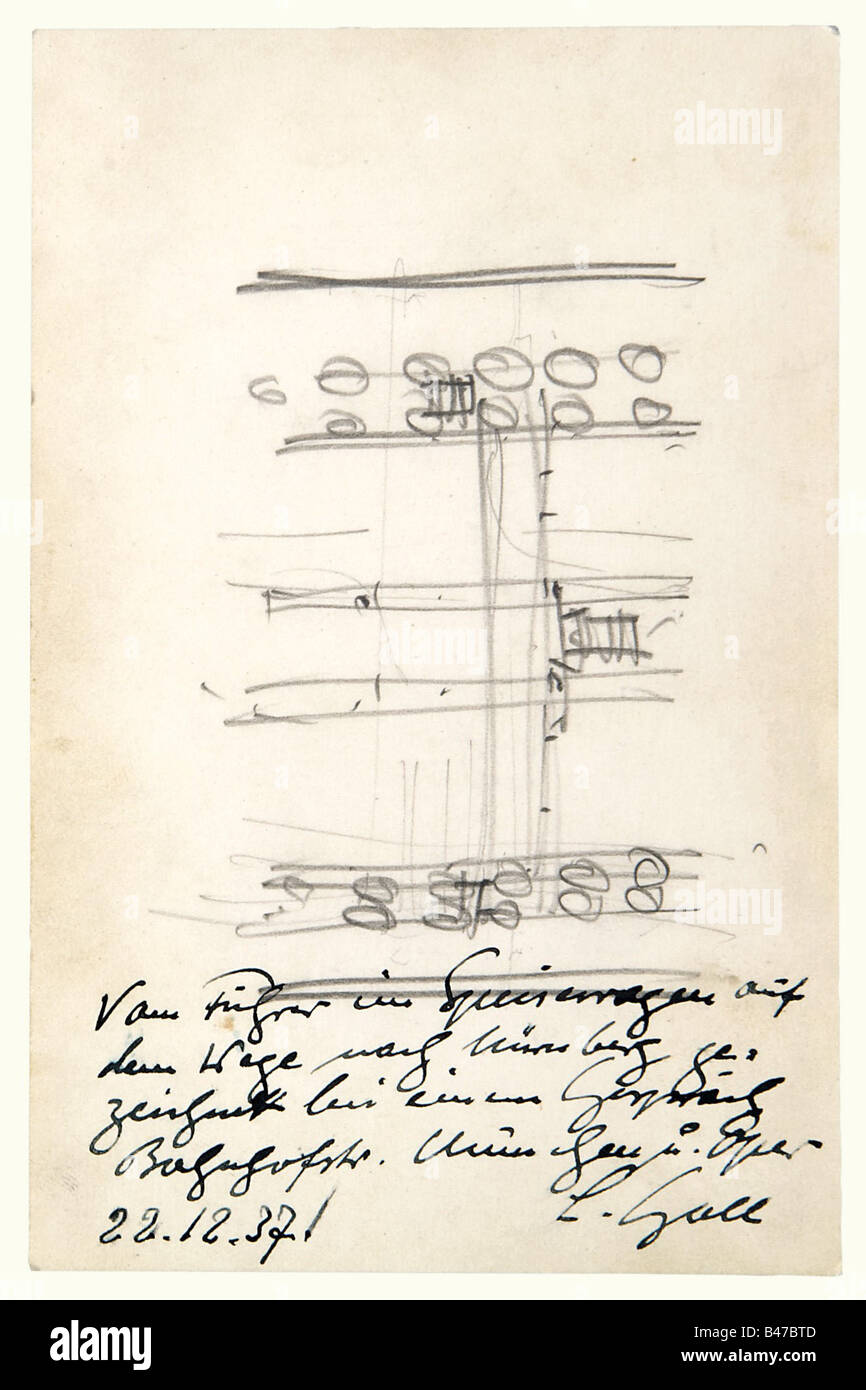 Vom Führer im Speisewagen auf
dem Wege nach Nürnberg ge-
zeichnet bei einem Gespräch
Bahnhofstr. München u. Oper
22.12.37! L. Gall
alamy
alamy
alamy
alamy
Image ID: B47BTD
www.alamy.com